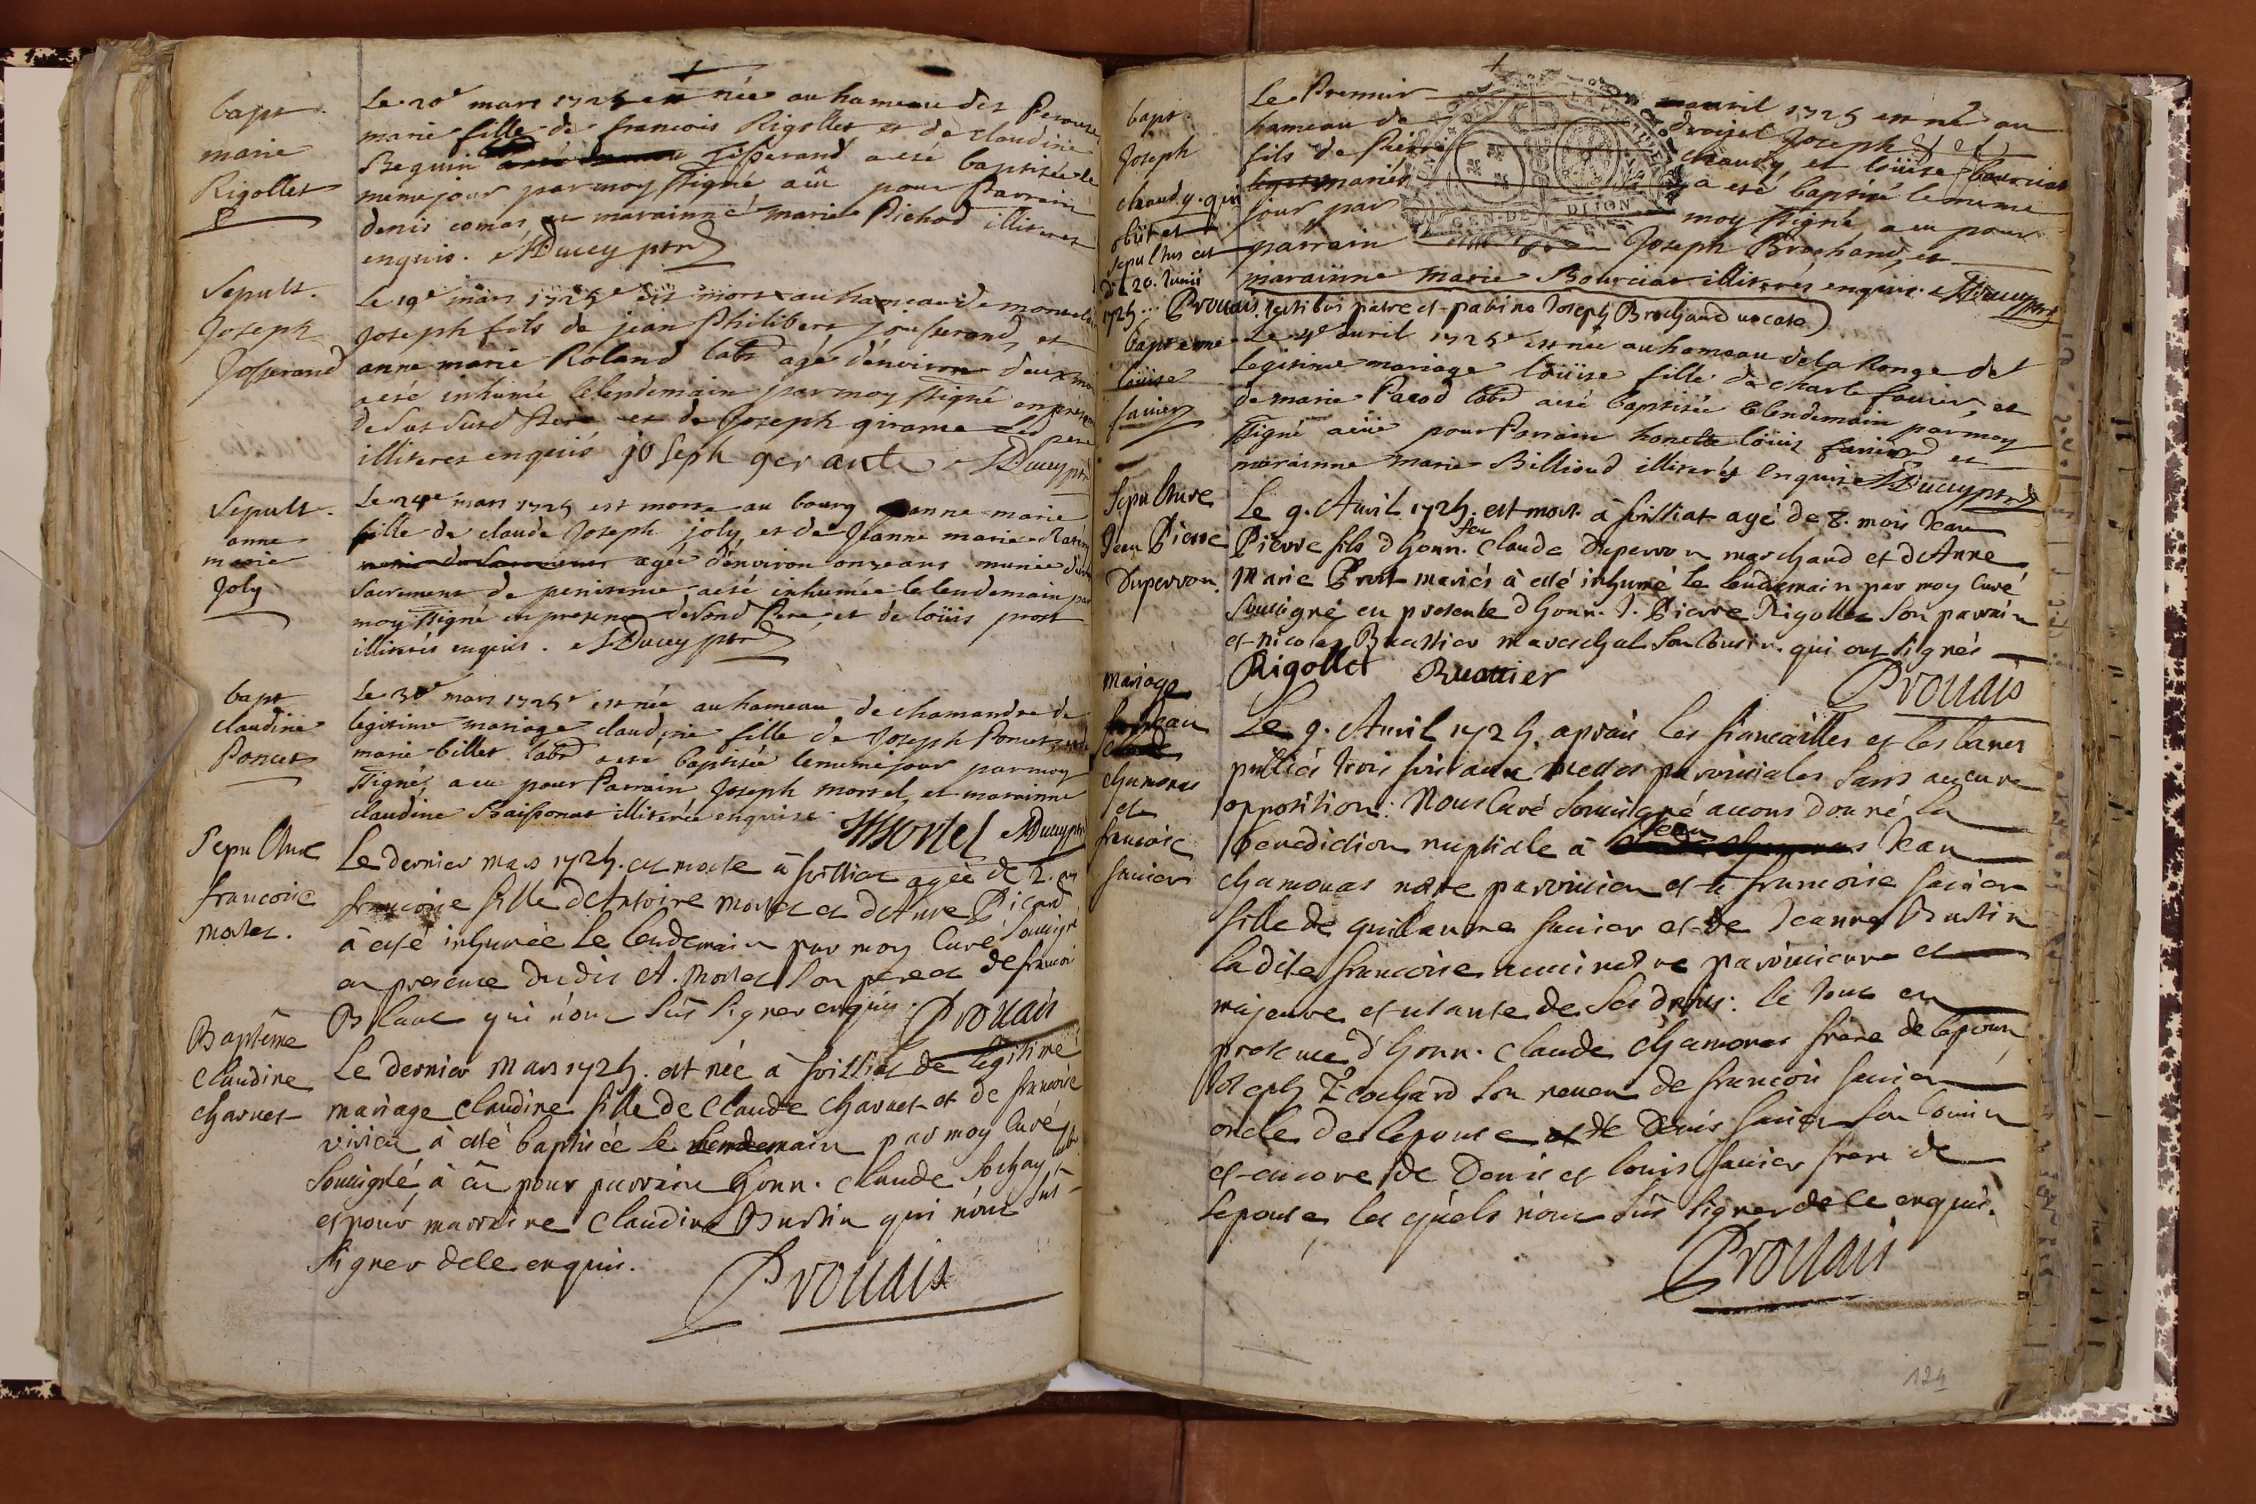 bapt
marie
Rigollet
Le 20e mars 1725 est née au hameau des Perouse
marie fille de francois Rigollet et de claudine
Beguin Tisserand a esté baptisée le
meme jour par moy ssigné a eu pour Parrain
denis comas et marainne marie Pichod illiteres
enquis. Ducey ptre
Sepult.
Joseph
Josserand
Le 19e mars 1725 est mort au hameau de
Joseph fils de jean Philibert josserand, et
anne marie Roland labr agé d'environ deux
a esté inhumé le lendemain par moy ssigné en
de sus Pere et de Joseph girame
illiteres enquis joseph gerante Ducey ptre
Sepult.
anne
marie
Joly
Le 24e mars 1725 est morte au bourg anne marie
fille de claude Joseph joly, et de Jeanne marie
agée d'environ onze ans munie du
sacrement de penitence, a esté inhumée le lendemain par
moy ssigné en presence de sond Pere, et de loüis prost
illiterés enquis. Ducey ptre
bapt
claudine
Poncet
Le 30e mars 1725 est née au hameau de chamandre de
legitime mariage claudine fille de Joseph Poncet
marie billet labr a esté baptisée le meme jour par moy
ssigné, a eu pour Parrain Joseph mortel, et marainne
claudine illiterée enquise
JMortel Ducey ptre
Sepulture
francoise
mortel.
Le dernier mars 1725. est morte à foissiat agée de 2. an
francoise fille d'Antoine mortel et d'Anne Picard
à esté inhumée le lendemain par moy Curé Soussigné
en presence dudit A. Mortel son pere et de francois
Blanc qui n'ont sus signer enquis. Provais
Baptême
Claudine
charnet
Le dernier Mars 1725. est née à foissiat de legitime
mariage claudine fille de Claude charnet et de francoise
vivien à esté baptisée le lendemain par moy Curé
Soussigné, à eu pour parrain honn. claude Sochay
et pour marraine Claudine Burtin qui n'ont sus
signer de ce enquis.
Provais
bapt
Joseph
chaudy. qui
obiit et
sepultus est
die 20. Junii
1725... Provais. testibus patre et patrino Joseph Brochand vocato
Le Premier avril 1725 est né au
hameau de Droiset Joseph
fils de Pierre chaudy, et loüise bourcias
mariés a esté baptisé le meme
jour par moy ssigné, a eu pour
parrain Joseph Brochand, et
marainne marie Bourcias illiterés enquis. Ducey ptre
baptesme
loüise
favier
Le 4e avril 1725 est née au hameau de la Ronge de
legitime mariage loüise fille de charle favier, et
de marie Pacod labr a esté baptisée le lendemain par moy
ssigné a eüe pour Parrain honeste loüis favier et
marainne marie Billioud illiterés enquis Ducey ptre
Sepulture
Jean Pierre
Duperron.
Le 9. Avril 1725. est mort à foissiat agé de 8. mois Jean
Pierre fils d'honn. feu Claude Duperron marchand et d'Anne
Marie Prost mariés à esté inhumé le lendemain par moy Curé
Soussigné en presente d'honn. J. Pierre Rigollet son parrain
et nicolas Buattier mareschal son Cousin qui ont signés
Rigollet Buattier
Provais
Mariage
Jean
chamonas
et
francoise
favier
Le 9. Avril 1725. aprais les fiancailles et les bancs
publiés trois fois aux messes parroissiales sans aucune
opposition: Nous Curé Soussigné avons donné la
benediction nuptiale à Jean
chamonas notre parroissien et à francoise favier
fille de guillaume favier et de Jeanne Burtin
ladite francoise aussi notre parroissienne et
majeure et usante de ses droits: le tout en
presence d'honn. claude chamonas frere de lepoux
Joseph Ecochard son neveu de francois favier
oncle de lepouse et de Denis favier son Cousin
et encore de Denis et louis favier frere de
lepouse lesquels n'ont sus signer de ce enquis.
Provais
124